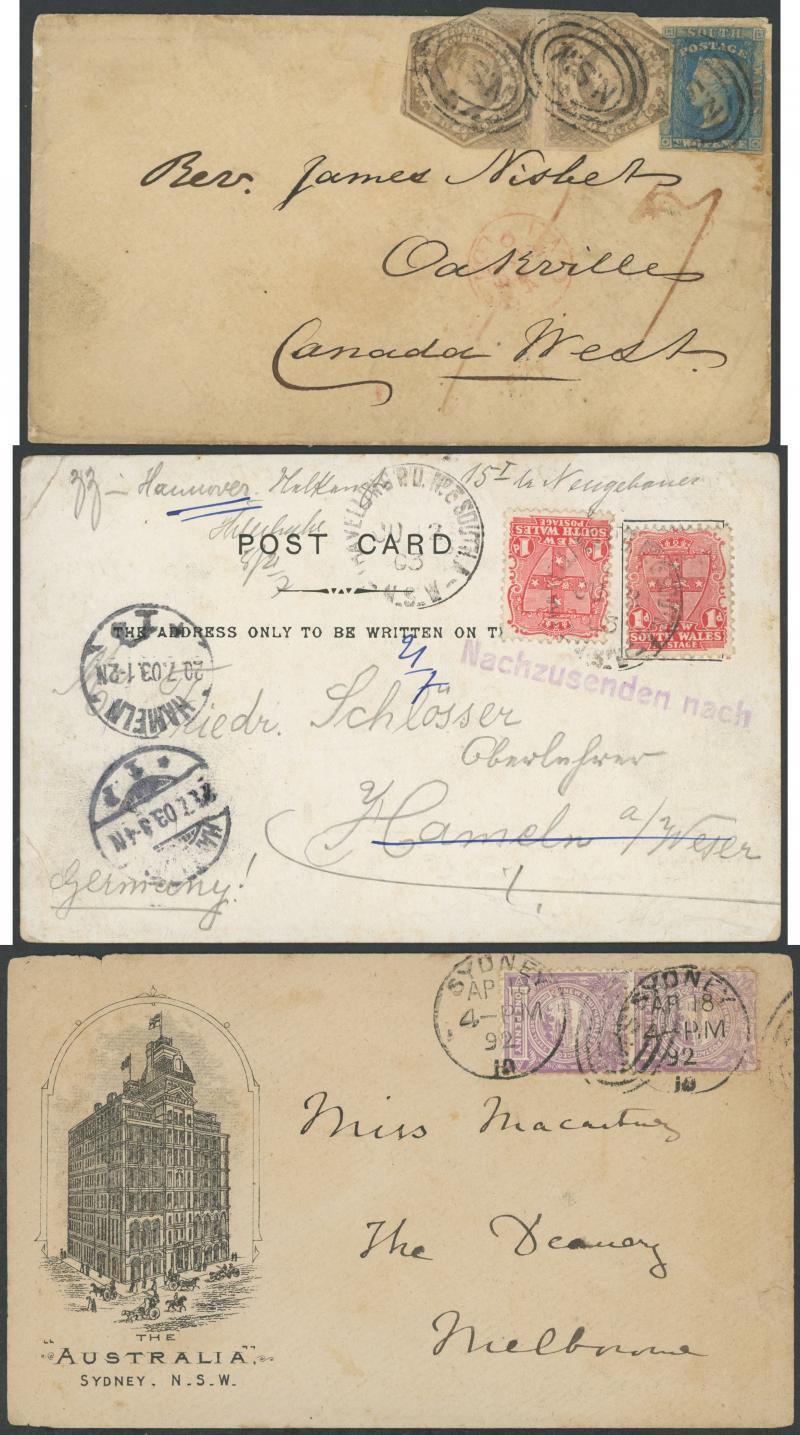 SOUTH WALES
POSTAGE
TWO PENCE
N.S.W
N.S.W
Rev. James Nisbet
Oakville
Canada West.
Hannover
15I
Neugebauer
TRAVELLING P.O. No. 2 SOUTH
03
N.S.W
POST CARD
NEW SOUTH WALES POSTAGE 1d
1d 1d
NEW SOUTH WALES
POSTAGE
THE ADDRESS ONLY TO BE WRITTEN ON
21/7
Nachzusenden nach
HAMELN
20.7.03.1-2N
Friedr. Schlösser
Oberlehrer
Hameln a/Weser
21.7.03.3-4N
Germany!
SYDNEY
AP 18
4-PM
92
10
SYDNEY
AP 18
4-PM
92
10
ONE PENNY
Miss Macartney
The Deanery
Melbourne
THE
"AUSTRALIA",
SYDNEY. N.S.W.